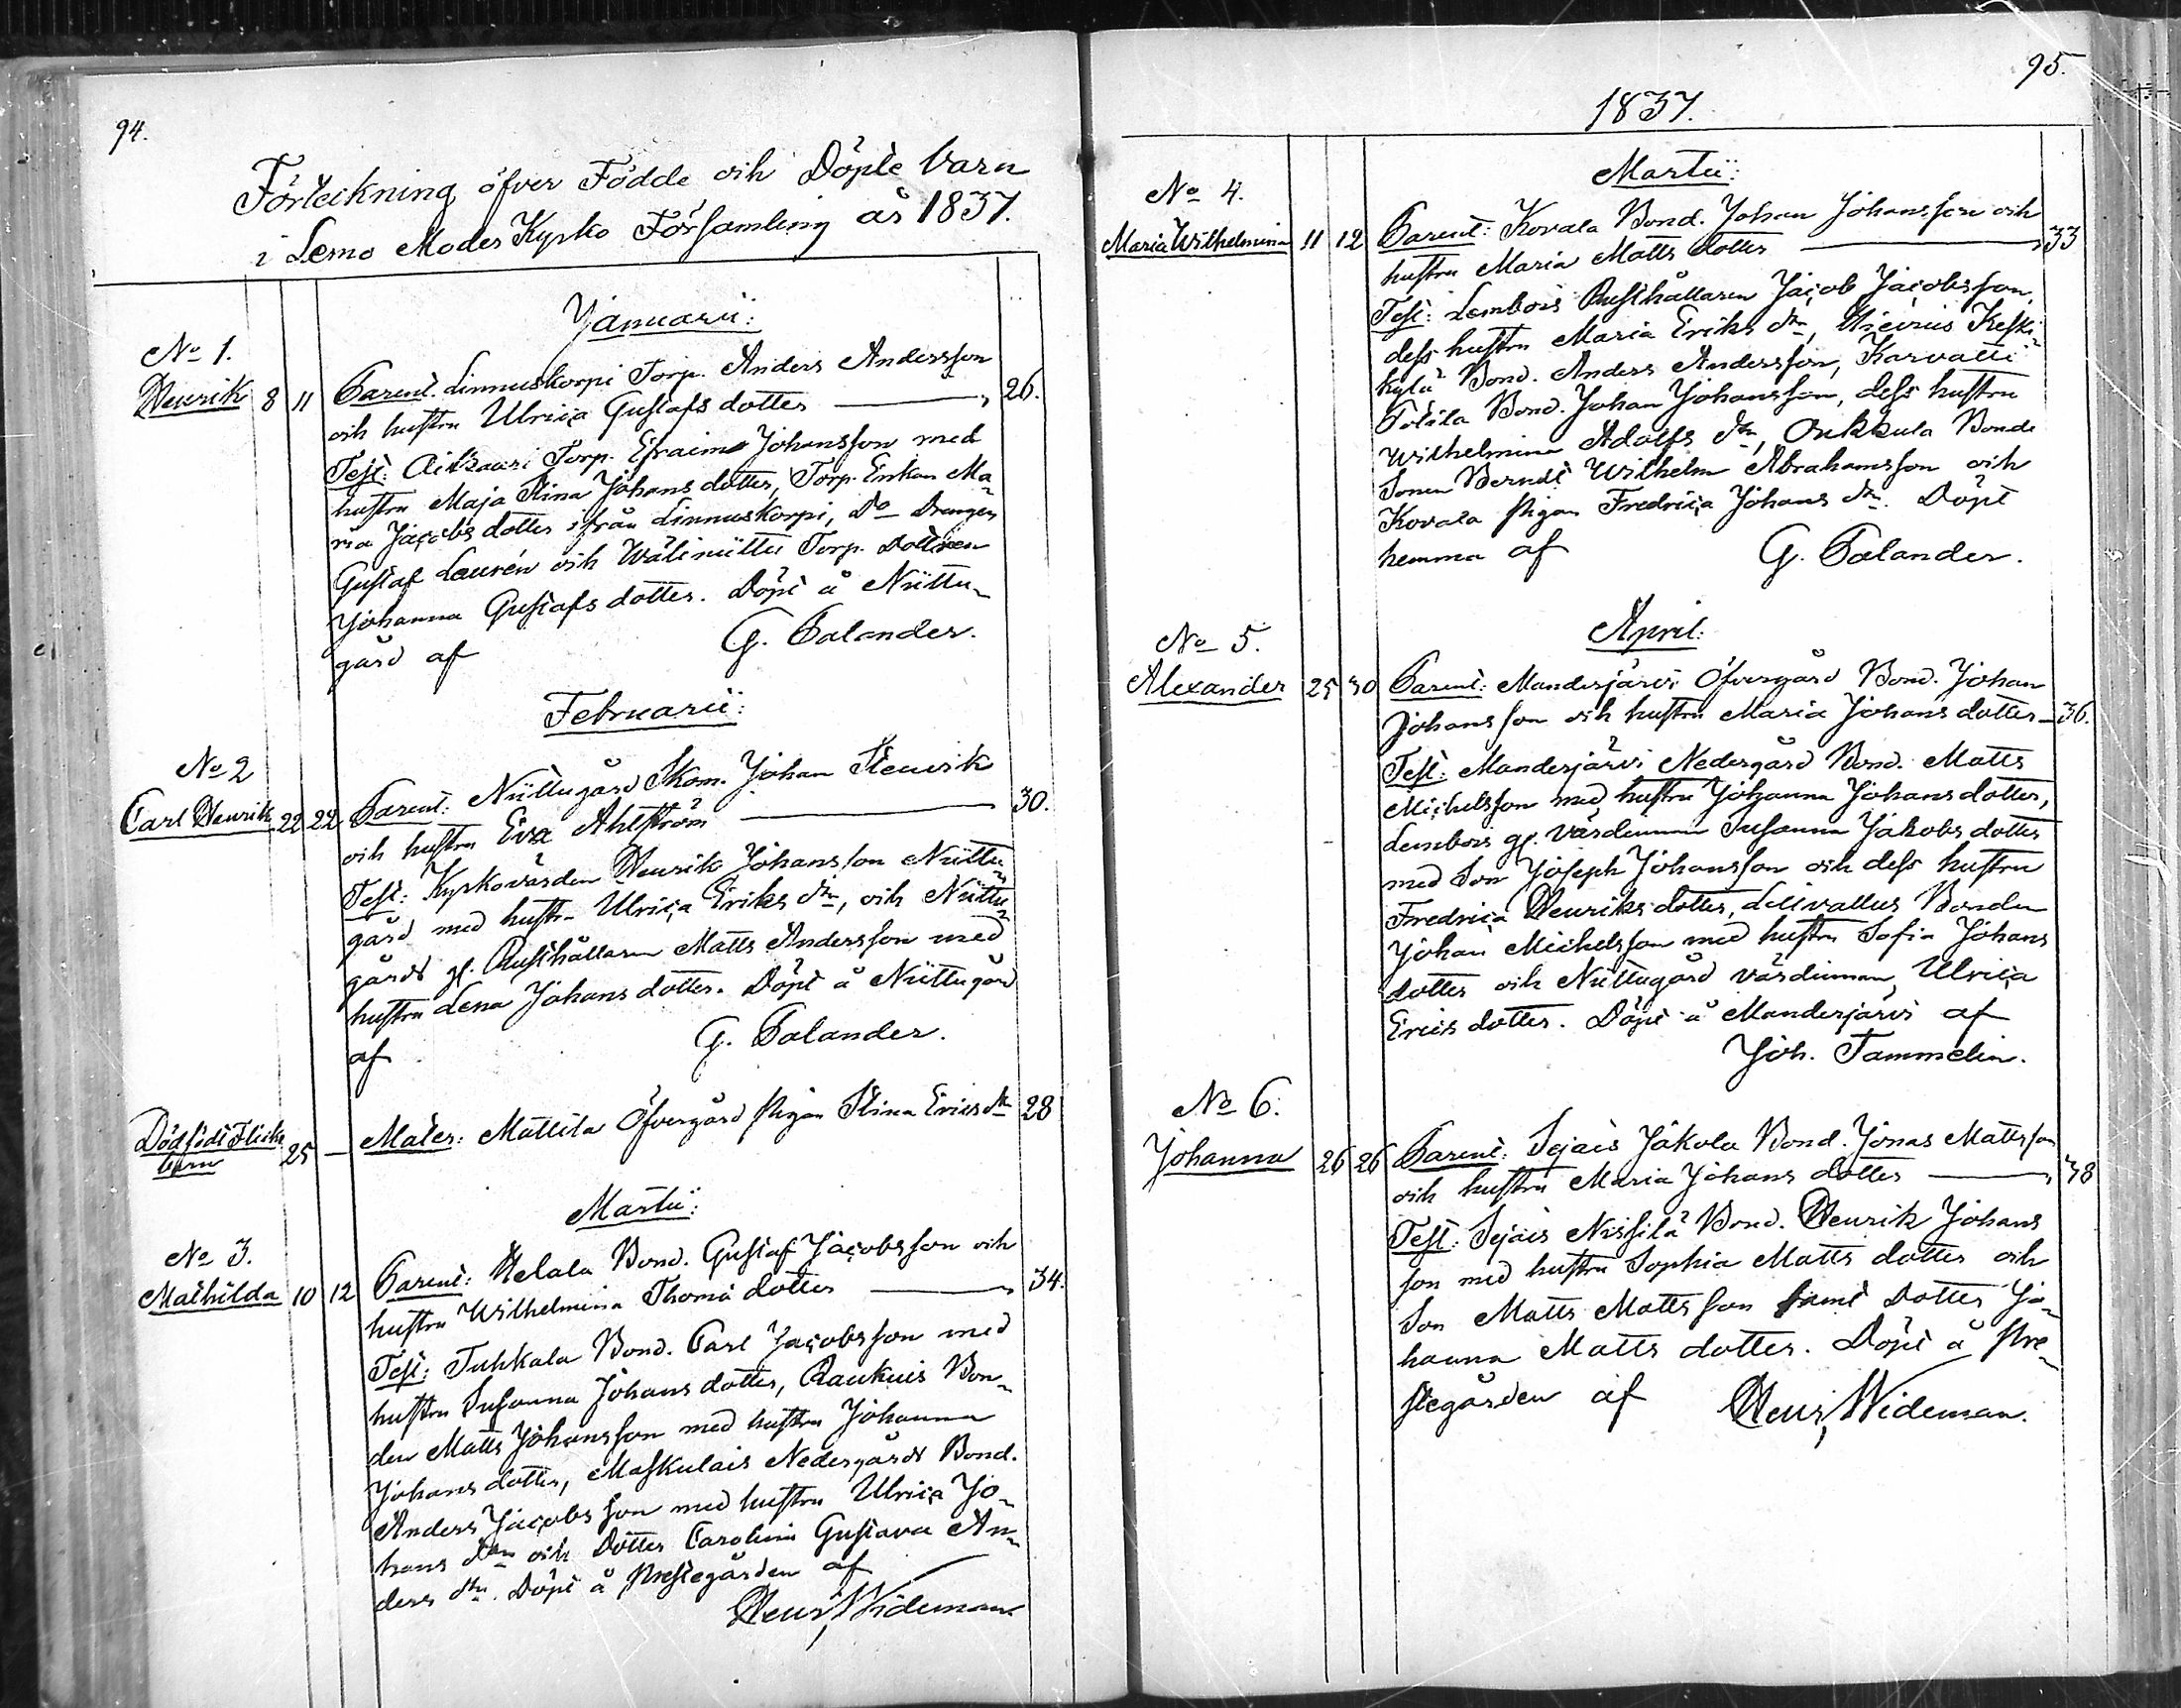 94.
Förteckning öfver Födde och Döpte barn
i Lemo Moder Kyrko Församling år 1837.
Januarii:
No 1.
Henrik 8 11 Parent. Linnuskorpi Torp. Anders Andersson
och hustru Ulrica Gustafs dotter 26.
Test: Aitkaari Torp. Efraim Johansson med
hustru Maja Stina Johans dotter, Torp. Enkan Ma-
ria Jacobs dotter ifrån Linnuskorpi, Do Drengen
Gustaf Laurén och Wäliniittu Torp. Dottren
Johanna Gustafs dotter. Döpt å Niittu-
gård af G. Palander.
Februarii:
No 2
Carl Henrik 22 22 Parent: Niittugård Skom. Johan Henrik
och hustru Eva Ahlström 30.
Test: Kyrkovärden Henrik Johansson Niittu-
gård med hustr. Ulrica Eriks dtr, och Niittu-
gårds gl. Rusthållaren Matts Andersson med
hustru Lena Johans dotter. Döpt å Niittugård
af G. Palander.
Dödfödt Flicke
barn 25 — Mater: Mattila Öfvergård Pigan Stina Erics dtr 28
Martii:
No 3.
Mathilda 10 12 Parent: Helala Bond. Gustaf Jacobsson och
hustru Wilhelmina Thomä dotter 34.
Test: Tuhkala Bond. Carl Jacobsson med
hustru Susanna Johans dotter, Raukuis Bon-
den Matts Johansson med hustru Johanna
Johans dotter, Maskulais Nedergårds Bond.
Anders Jacobsson med hustru Ulrica Jo-
hans dtr och Dotter Carolina Gustava An-
ders dtr. Döpt å Prestegården af
Henr, Wideman
95.
1837.
Martii:
No 4.
Maria Wilhelmina 11 12 Parent: Kovala Bond. Johan Johansson och
hustru Maria Matts dotter 33
Test: Lembois Rusthållaren Jacob Jacobsson,
dess hustru Maria Eriks dtr, Keski-
kylä Bond. Anders Andersson, Karvatti
Pölila Bond. Johan Johansson, dess hustru
Wilhelmina Adolfs dtr, Onkkula Bonde
Sonen Berndt Wilhelm Abrahamsson och
Kovala Pigan Fredrica Johans dtr. Döpt
hemma af G. Palander.
April:
No 5.
Alexander 25 30 Parent: Manderjärvi Öfvergård Bond. Johan
Johansson och hustru Maria Johans dotter 36.
Test: Manderjärvi Nedergård Bond. Matts
Michelsson med hustru Johanna Johans dotter,
Lembois gl. värdinnan Susanna Jakobs dotter
med Son Joseph Johansson och dess hustru
Fredrica Henriks dotter, Letivallus Bonden
Johan Michelsson med hustru Sofia Johans
dotter och Niittugård värdinnan, Ulrica
Erics dotter. Döpt å Manderjärvi af
Joh. Tammelin.
No 6.
Johanna 26 26 Parent: Sejais Jäkola Bond. Jonas Mattsson
och hustru Maria Johans dotter 38
Test: Sejais Nissilä Bond. Henrik Johans
son med hustru Sophia Matts dotter och
Son Matts Mattsson samt Dotter Jo-
hanna Matts dotter. Döpt å Pre-
stegården af Henr, Wideman.